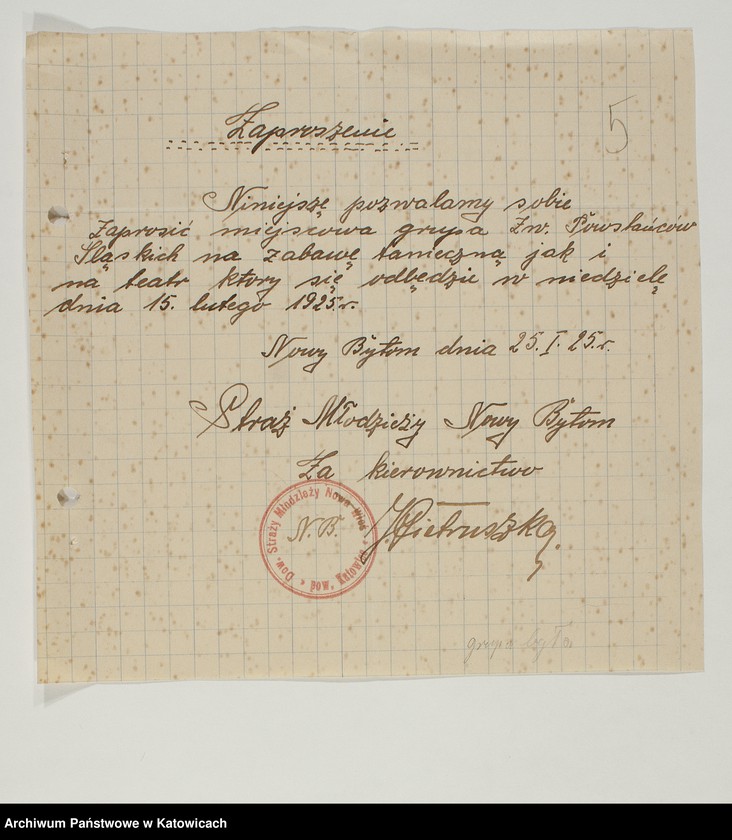 5
Zaproszenie
Niniejszę pozwalamy sobie
zaprosić miejscowa grupa Zw. Powstańców
Sląskich na zabawę taneczną jak i
na teatr ktory się odbędzie w niedzielę
dnia 15. lutego 1925r.
Nowy Bytom dnia 25.I.25.r.
Straż Młodzieży Nowy Bytom
Za kierownictwo
J. Pietruszka.
Dow. Straży Młodzieży Nowa Wieś
N.B.
pow. Katowice
grupa była
Archiwum Państwowe w Katowicach